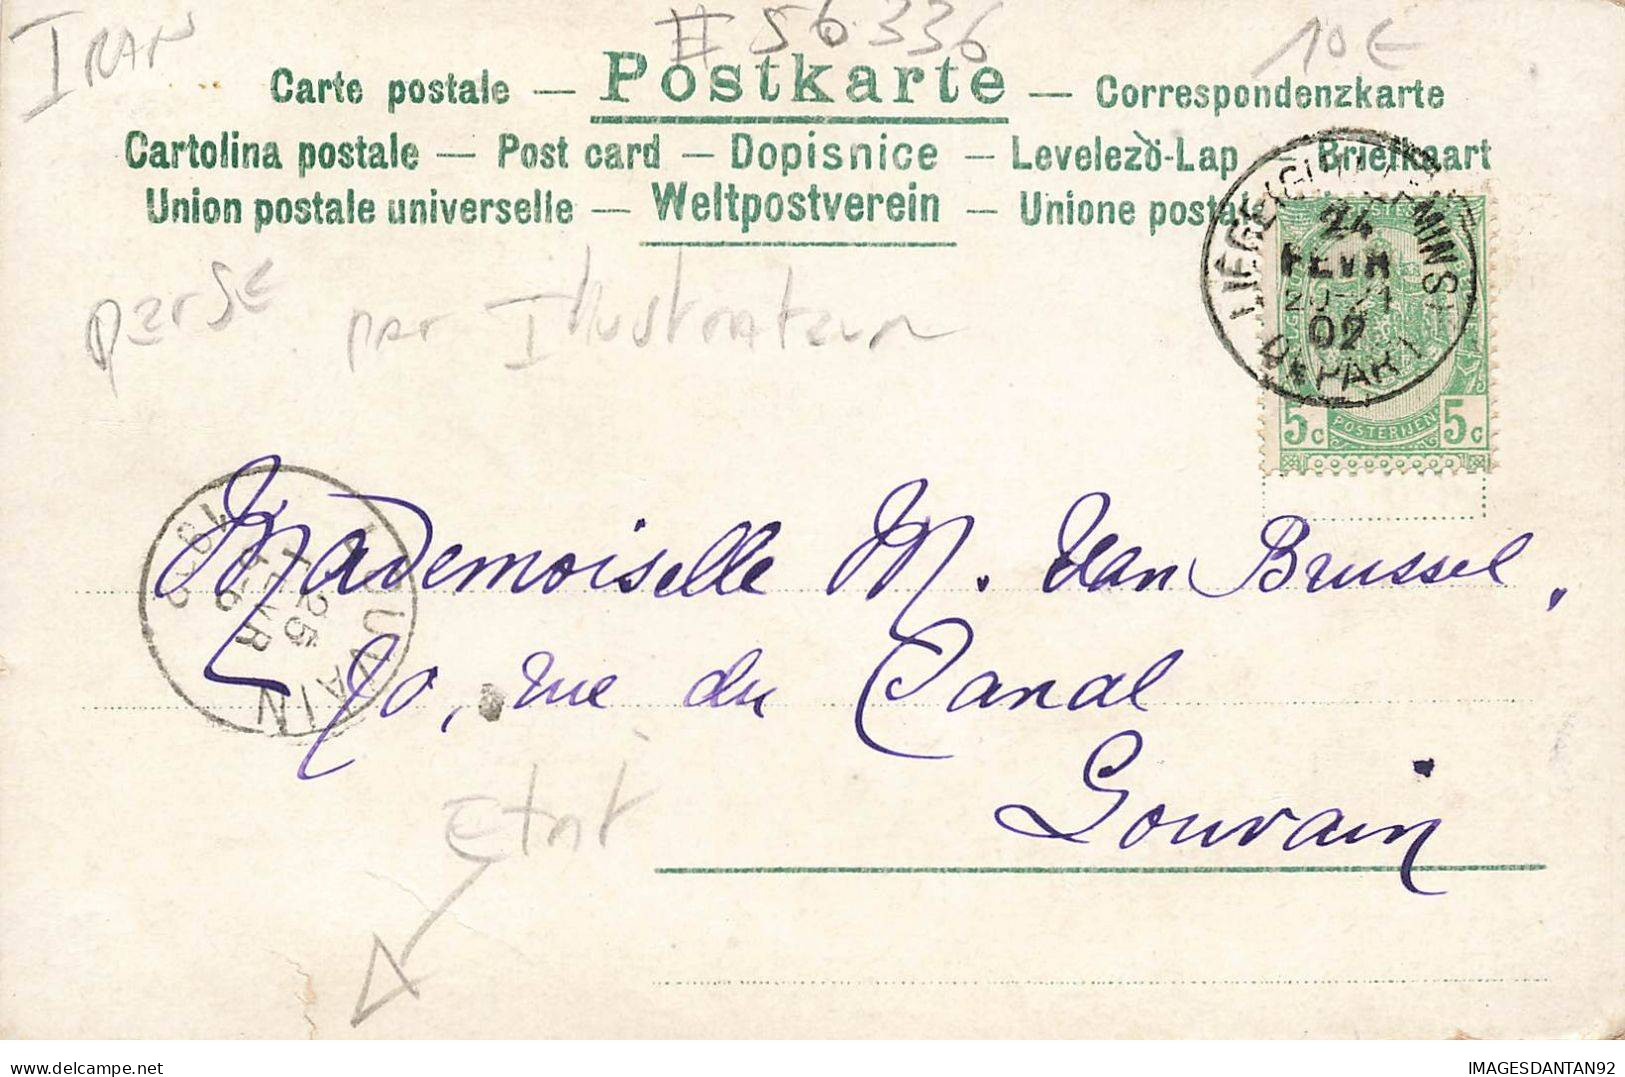 IRAN # 56336 10€
Carte postale — Postkarte — Correspondenzkarte
Cartolina postale — Post card — Dopisnice — Levelezö-Lap — Briefkaart
Union postale universelle — Weltpostverein — Unione postale
LIÉGE (GUILLEMINS)
24
FEVR
20-21
02
DÉPART
5c POSTERIJEN 5c
perse par Illustrateur
LOUVAIN
25
FEVR
5-6
1902
Mademoiselle M. Van Brussel,
70, rue du Canal
Louvain
Etat
IMAGESDANTAN92
delcampe.net